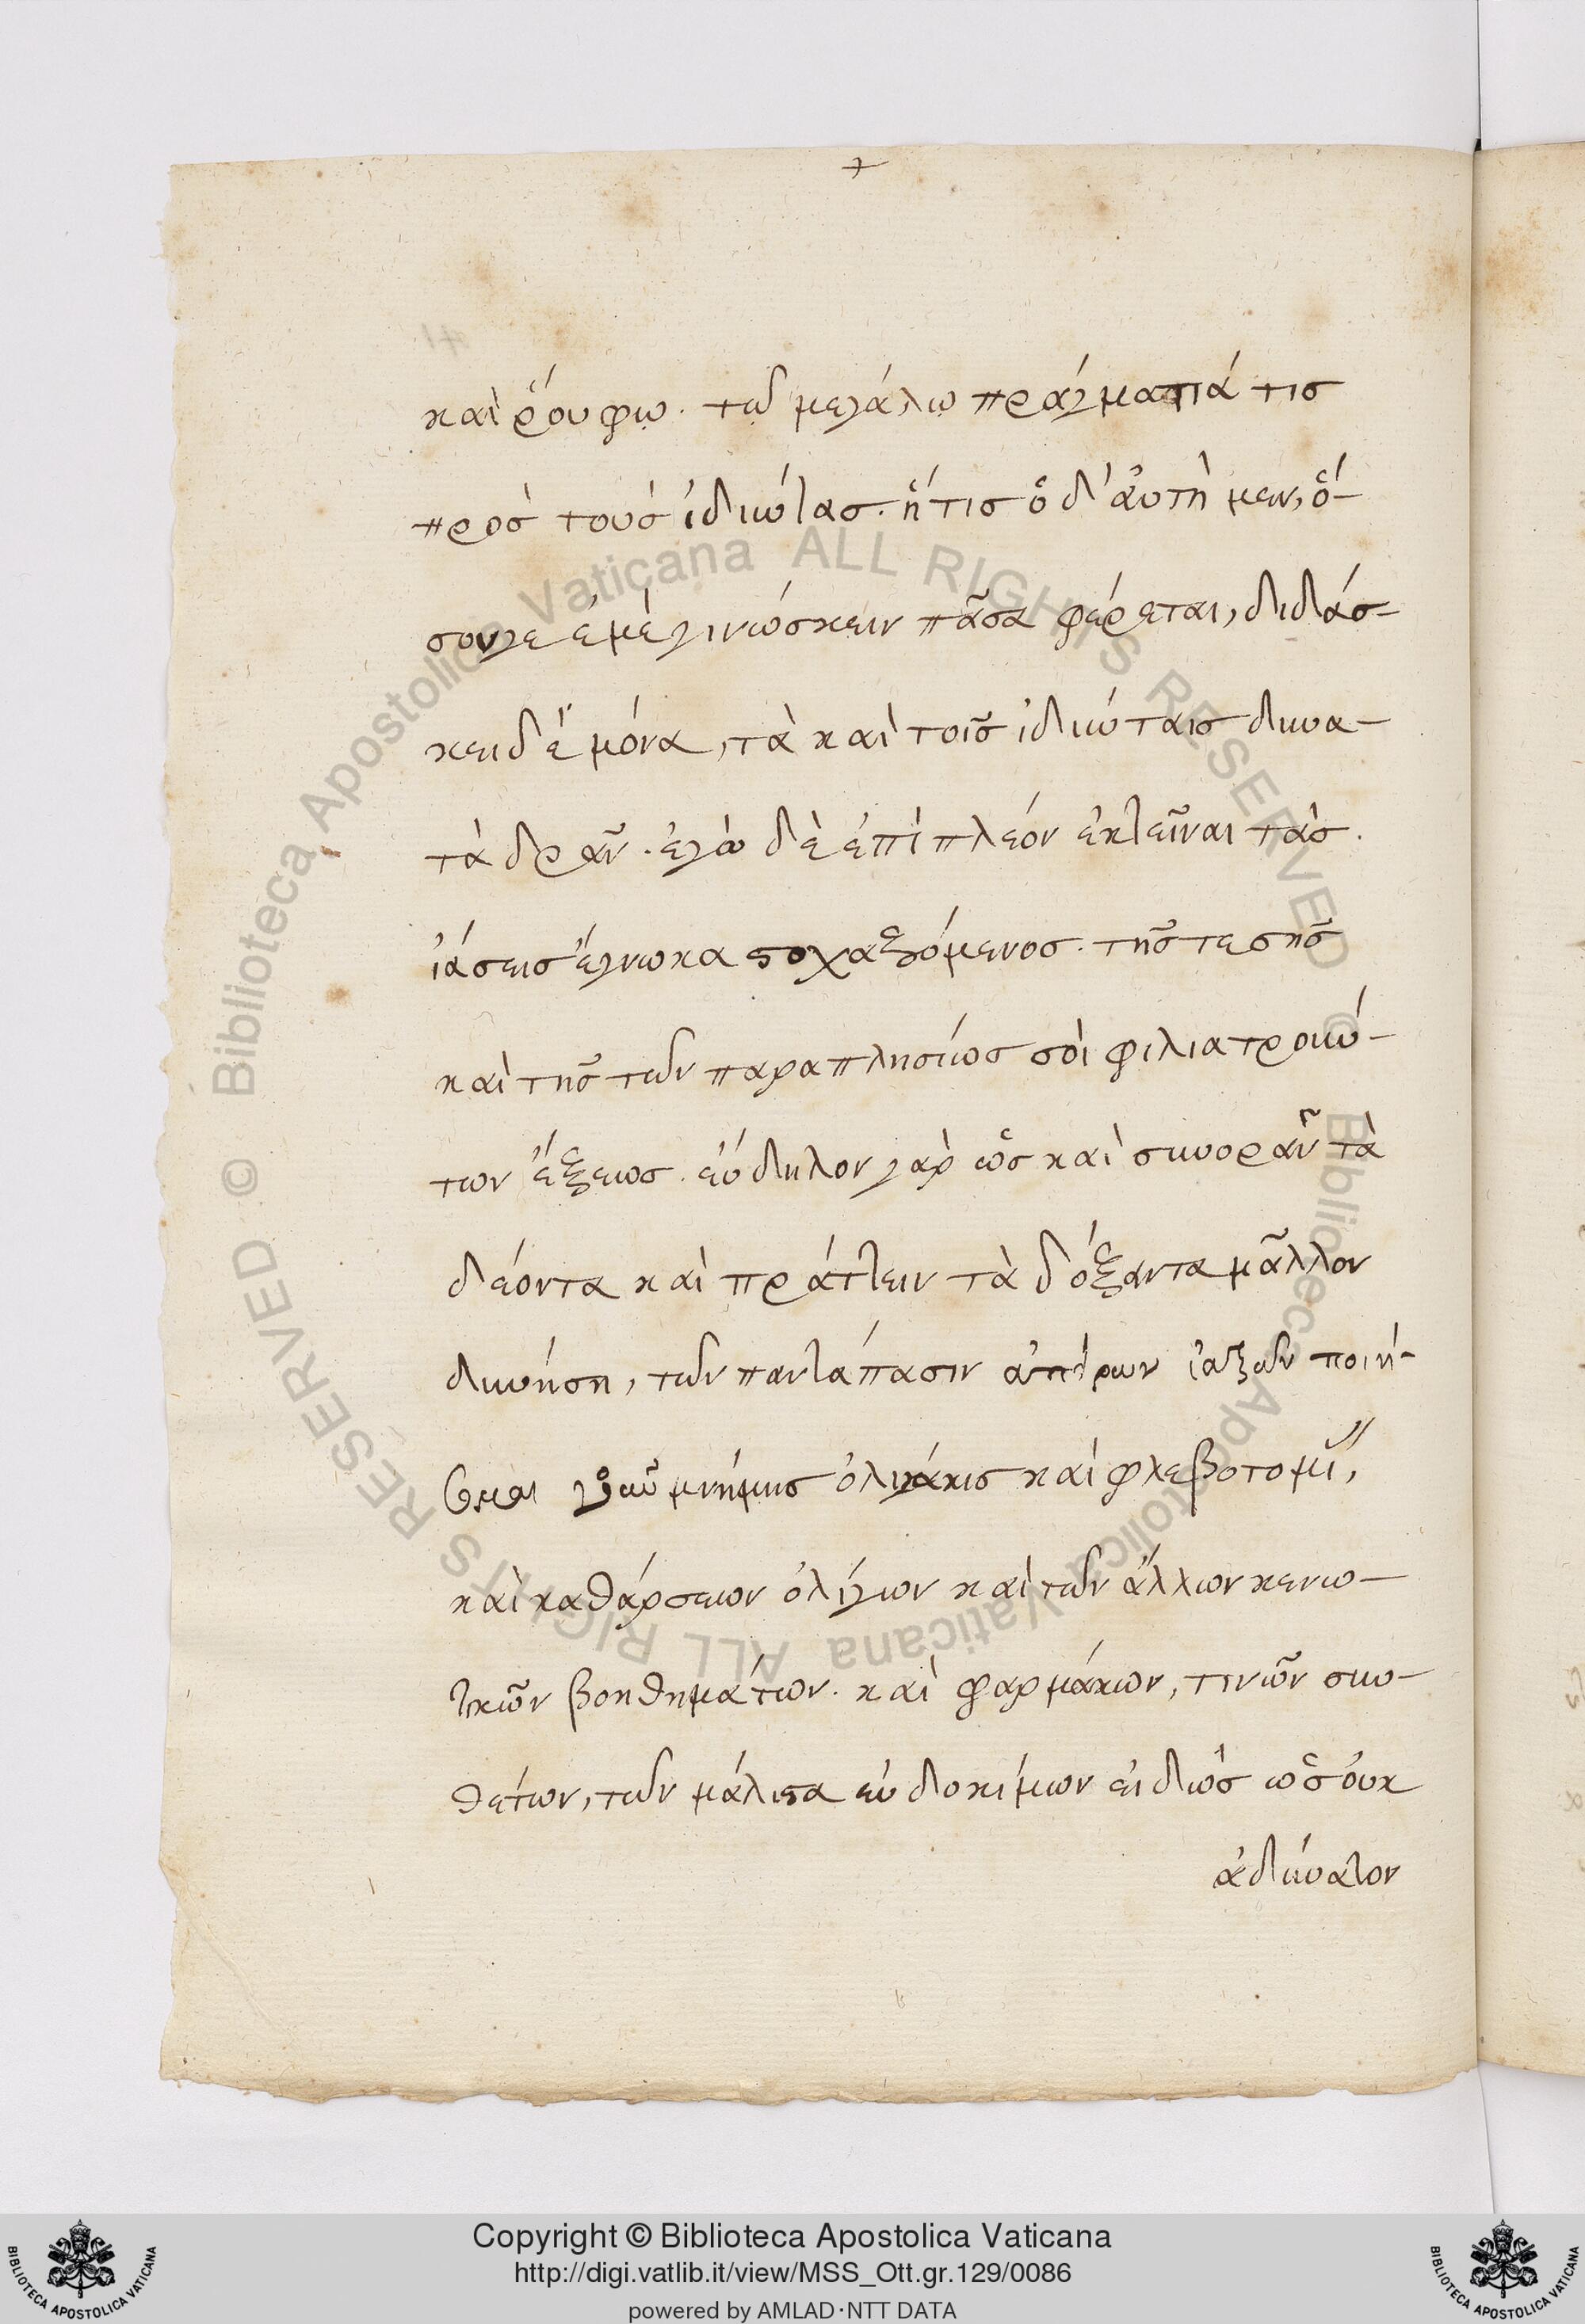 +
καὶ ῥούφῳ. τῷ μεγάλῳ πράγματιά τισ
πρὸσ τοὺσ ἰδιώτασ. ἥτισ ὅ δ' ἀυτὴ μεν, ὅ-
σον γε ἐμὲ γινώσκειν πᾶσα φέρεται, διδάσ-
κει δὲ μόνα, τὰ καὶ τοῖσ ἰδιώταισ δυνα-
τὰ δρᾷν. ἐγὼ δὲ ἐπὶ πλεόν ἐκτεῖναι τὰσ.
ἰάσεισ ἔγνωκα στοχαζόμενοσ. τῆσ τε σῆσ
καὶ τῆσ τῶν παραπλησίωσ σοὶ φιλιατρούν-
των ἕξεωσ. εὔδηλον γὰρ ὡσ καὶ συνορᾷν τὰ
δέοντα καὶ πράττειν τὰ δόξαντα μᾶλλον
δυνήσῃ, τῶν παντάπασιν ἀπείρων ἰατρῶν ποιή-
σομαι μνήμησ ὀλιγάκισ καὶ φλεβοτομί,
καὶ καθάρσεων ὀλίγων καὶ τῶν ἄλλων κενω-
τικῶν βοηθημάτων. καὶ φαρμάκων, τινῶν συν-
θέτων, τῶν μάλιστα εὐδοκίμων εἰδὼσ ὡσ ὀυκ
ἀδύνατον
Copyright © Biblioteca Apostolica Vaticana
http://digi.vatlib.it/view/MSS_Ott.gr.129/0086
powered by AMLAD·NTT DATA
BIBLIOTECA APOSTOLICA VATICANA
BIBLIOTECA APOSTOLICA VATICANA
© Biblioteca Apostolica Vaticana ALL RIGHTS RESERVED © Biblioteca Apostolica Vaticana ALL RIGHTS RESERVED